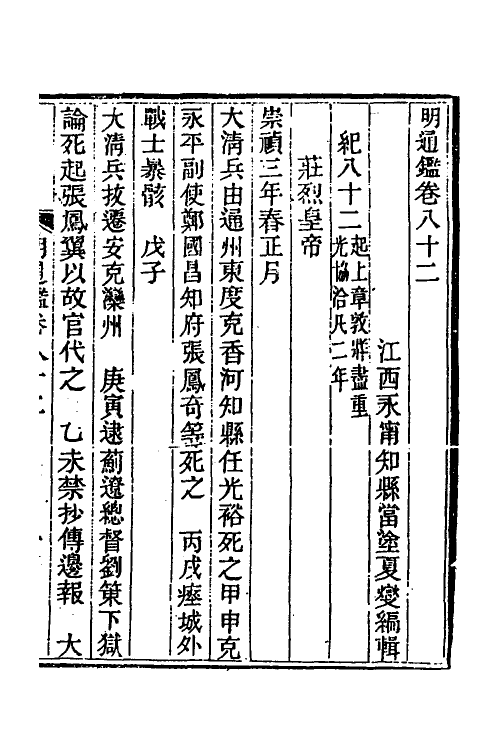 明通鑑卷八十二
江西永甯知縣當塗夏燮編輯
紀八十二
起上章敦牂盡重
光協洽凡二年
莊烈皇帝
崇禎三年春正月
大淸兵由通州東度克香河知縣任光裕死之甲申克
永平副使鄭國昌知府張鳳奇等死之 丙戌瘞城外
戰士暴骸 戊子
大淸兵拔遷安克灤州 庚寅逮薊遼總督劉策下獄
論死起張鳳翼以故官代之 乙未禁抄傳邊報 大
明通鑑卷八十二